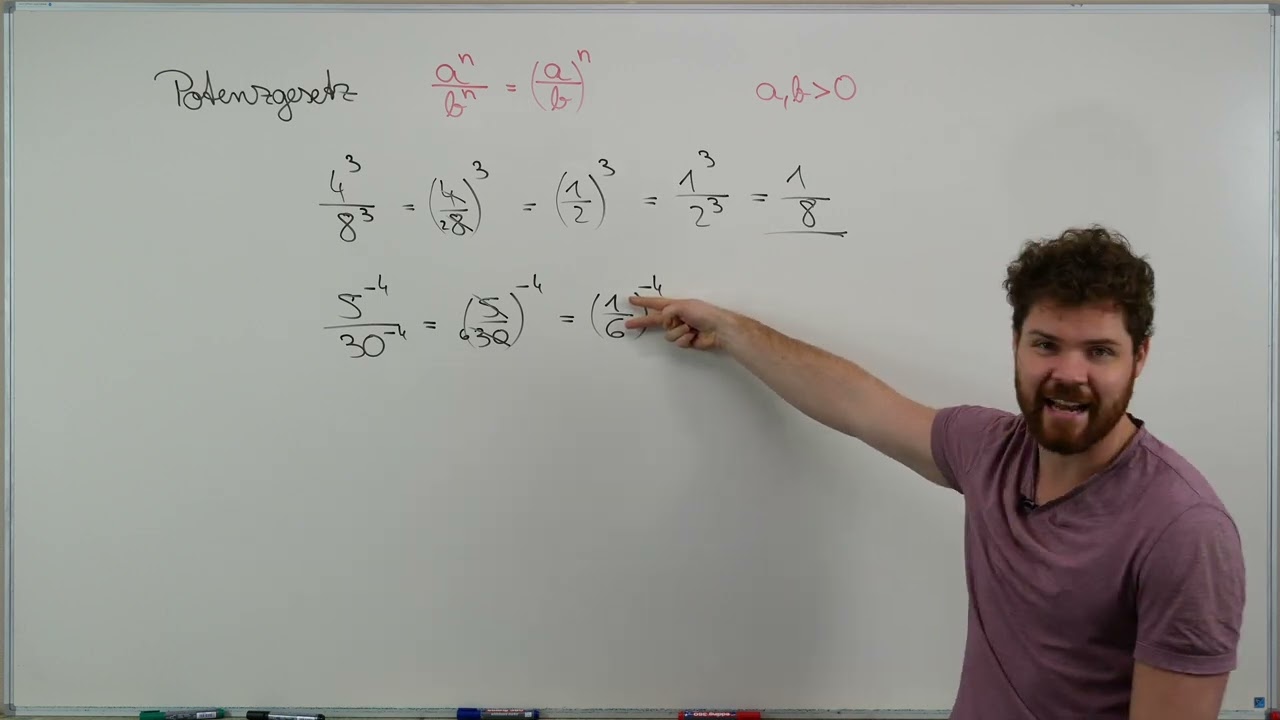 Potenzgesetz a^n/b^n = (a/b)^n a,b>0
4^3/8^3 = (4/28)^3 = (1/2)^3 = 1^3/2^3 = 1/8
5^-4/30^-4 = (5/630)^-4 = (1/6)^-4